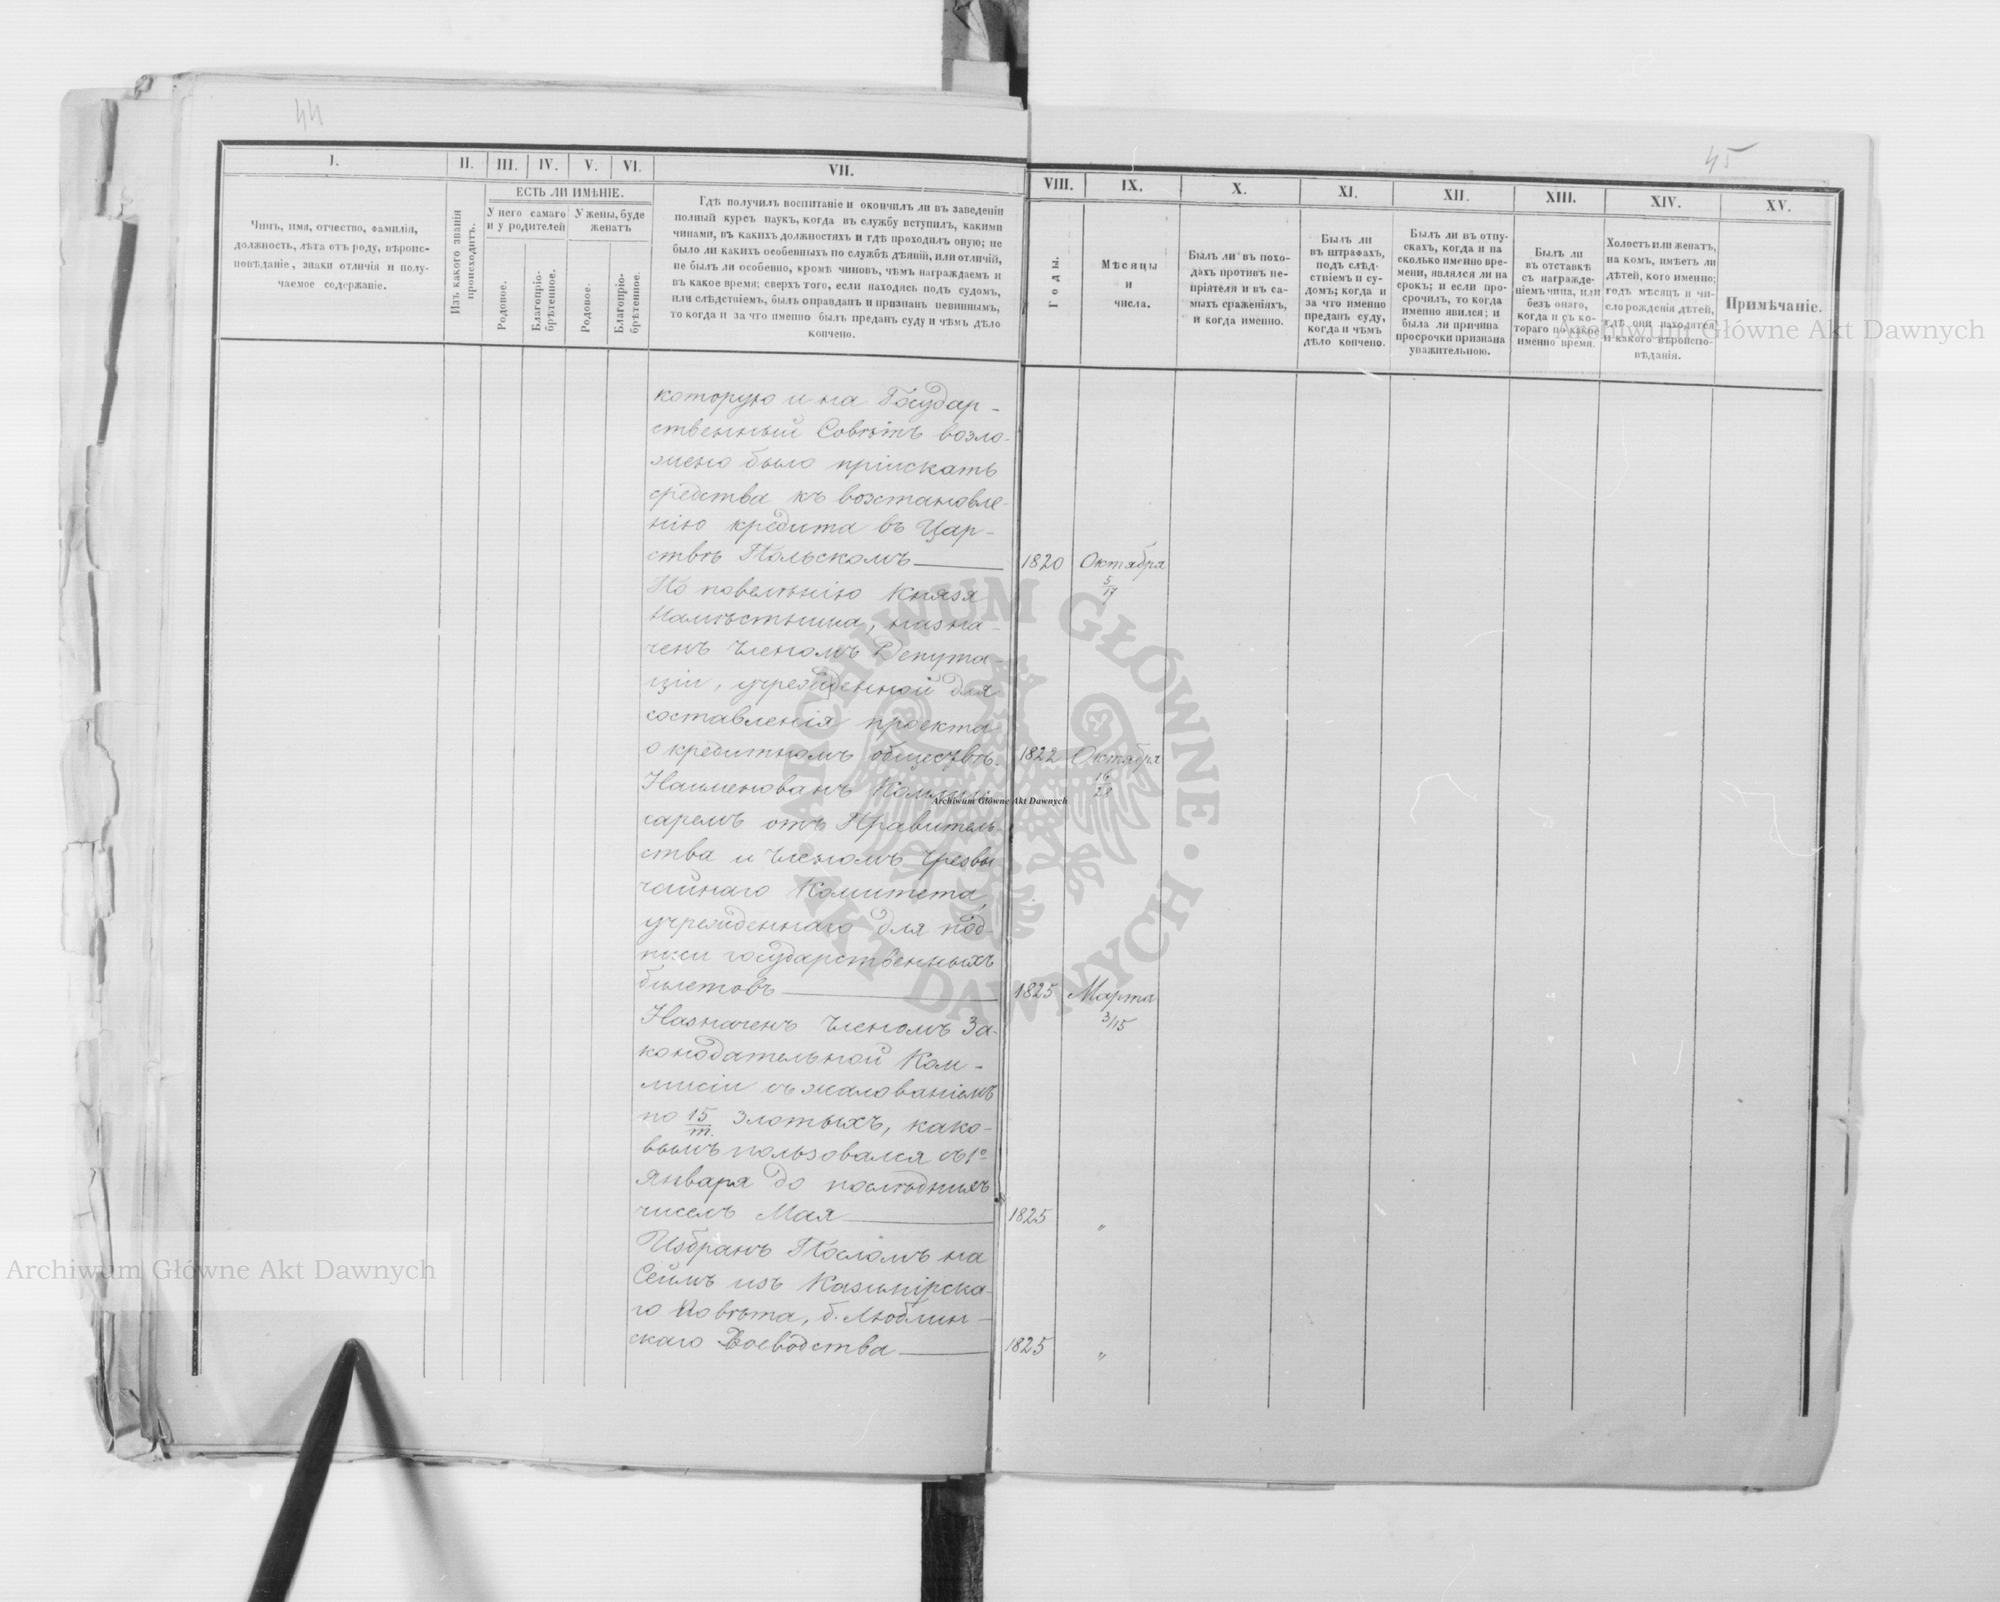 44
45
I.
II.
III.
IV.
V.
VI.
VII.
VIII.
IX.
X.
XI.
XII.
XIII.
XIV.
XV.
Чинъ, имя, отчество, фамилія,
должность, лѣта отъ роду, вѣроис-
повѣданіе, знаки отличія и полу-
чаемое содержаніе.
Изъ какого званія
происходитъ.
ЕСТЬ ЛИ ИМѢНІЕ.
У него самаго
и у родителей
У жены, буде
женатъ
Родовое.
Благопріо-
брѣтенное.
Родовое.
Благопріо-
брѣтенное.
Гдѣ получилъ воспитаніе и окончилъ ли въ заведеніи
полный курсъ наукъ, когда въ службу вступилъ, какими
чинами, въ какихъ должностяхъ и гдѣ проходилъ оную; не
было ли какихъ особенныхъ по службѣ дѣяній, или отличій,
не былъ ли особенно, кромѣ чиновъ, чѣмъ награждаемъ и
въ какое время; сверхъ того, если находясь подъ судомъ,
или слѣдствіемъ, былъ оправданъ и признанъ невиннымъ,
то когда и за что именно былъ преданъ суду и чѣмъ дѣло
кончено.
Годы.
Мѣсяцы
и
числа.
Былъ ли въ похо-
дахъ противъ не-
пріятеля и въ са-
мыхъ сраженіяхъ,
и когда именно.
Былъ ли
въ штрафахъ,
подъ слѣд-
ствіемъ и су-
домъ; когда и
за что именно
преданъ суду,
когда и чѣмъ
дѣло кончено.
Былъ ли въ отпу-
скахъ, когда и на
сколько именно вре-
мени, являлся ли на
срокъ; и если про-
срочилъ, то когда
именно явился; и
была ли причина
просрочки признана
уважительною.
Былъ ли
въ отставкѣ
съ награжде-
ніемъ чина, или
безъ онаго,
когда и съ ко-
тораго по какое
именно время.
Холостъ или женатъ,
на комъ, имѣетъ ли
дѣтей, кого именно;
годъ мѣсяцъ и чи-
сло рожденія дѣтей,
гдѣ они находятся
и какого вѣроиспо-
вѣданія.
Примѣчаніе.
которую и на Государ-
ственный Совѣтъ возло-
жено было пріискать
средства къ возстановле-
нію кредита въ Цар-
ствѣ Польскомъ
1820 Октября
5/17
По повелѣнію Князя
Намѣстника, назна-
ченъ Членомъ Депута-
ціи, учрежденной для
составленія проекта
о кредитномъ обществѣ.
1822 Октября
16/28
Наименованъ Коммис-
саремъ отъ Правитель-
ства и Членомъ Чрезвы
чайнаго Комитета,
учрежденнаго для под-
писи государственныхъ
билетовъ
1825 Марта
3/15
Назначенъ Членомъ За-
конодательной Ком-
мисіи съ жалованіемъ
по 15/т. злотыхъ, како-
вымъ пользовался съ 1º
Января до послѣднихъ
чиселъ Мая
1825 "
Избранъ Посломъ на
Сеймъ изъ Казимірска-
го Повѣта, б. Люблин-
скаго Воеводства
1825 "
Archiwum Główne Akt Dawnych
Archiwum Główne Akt Dawnych
Archiwum Główne Akt Dawnych
ARCHIWUM GŁÓWNE · AKT DAWNYCH ·